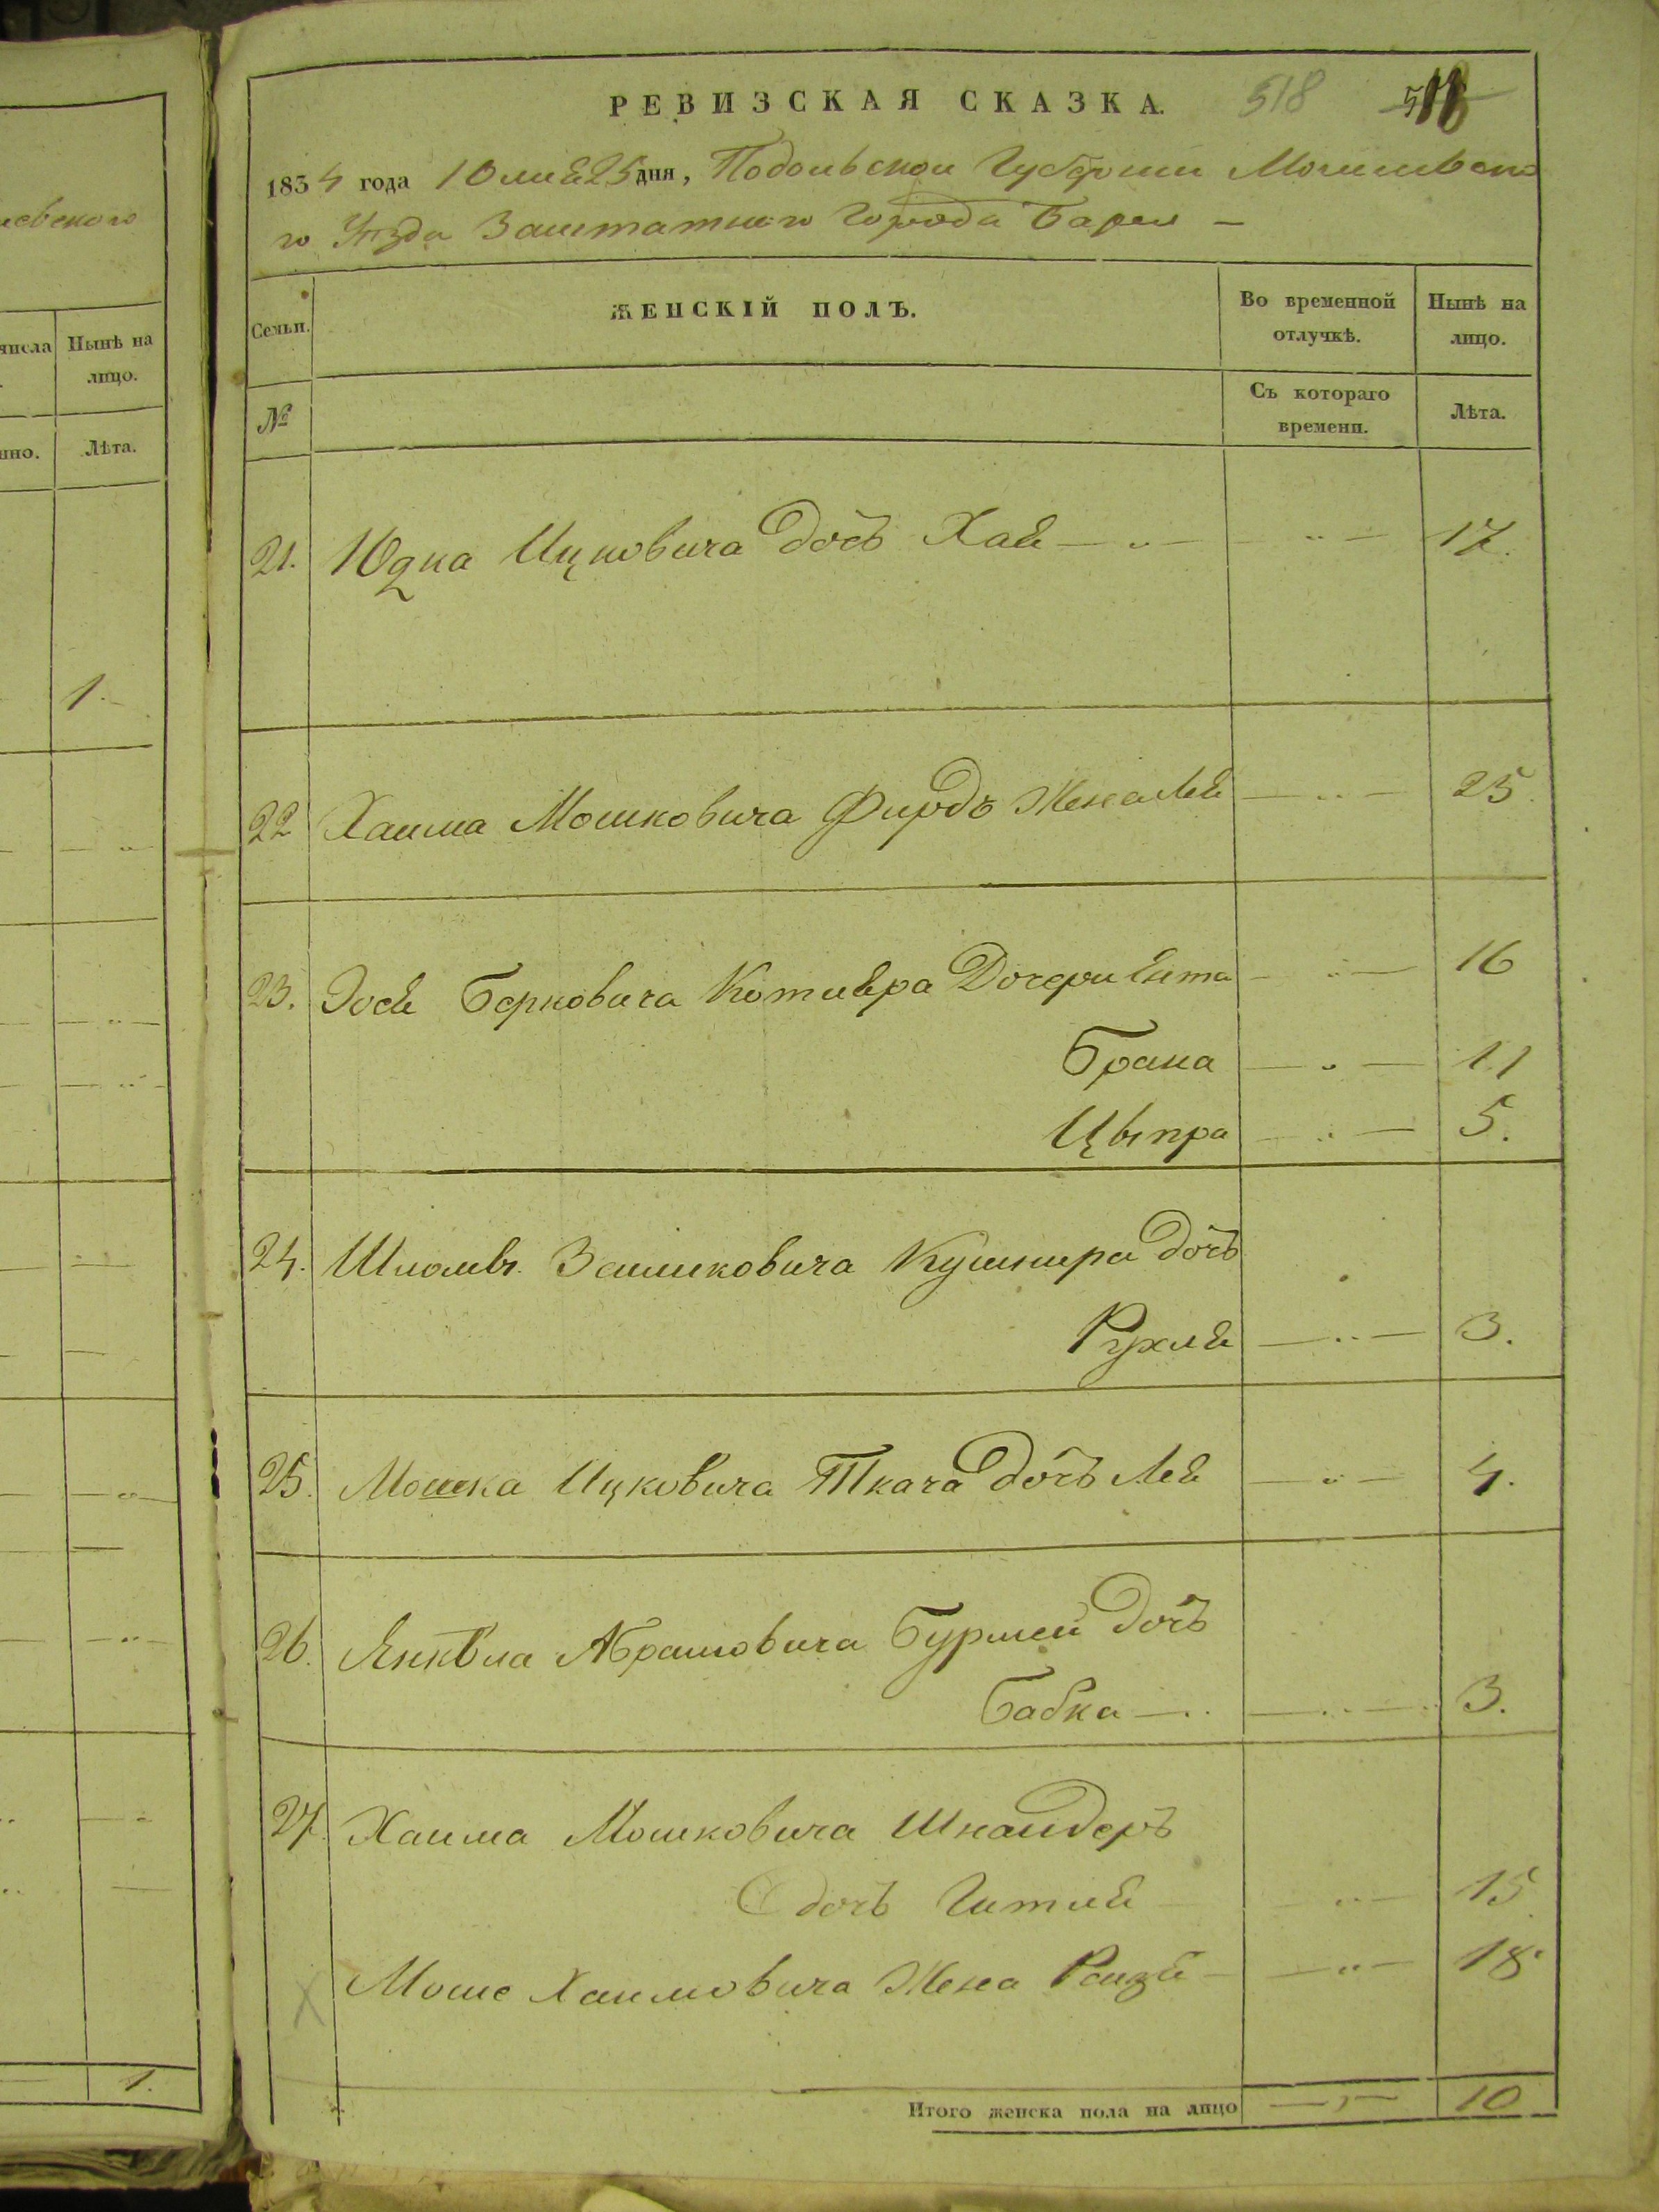 РЕВИЗСКАЯ СКАЗКА. 518
1834 года Юлиѣ 25 дня, Подольской Губернии Могилевско
го Уѣзда Заштатного Города Бара —
Семьи. ЖЕНСКІЙ ПОЛЪ. Во временной отлучкѣ. Нынѣ на лицо.
№ Съ котораго времени. Лѣта.
21. Юдка Ицковича дочь Хаѣ 17.
22 Хаима Мошковича Фирдъ Жена Леѣ 25.
23. Іосѣ Берковича Котлѣра Дочери Ента 16
Брана 11
Цыпра 5.
24. Шломы Зелмковича Кушнира дочь
Рухлѣ 3.
25. Мошка Ицковича Ткача дочь Леѣ 4.
26. Янкѣла Абрамовича Бурмей дочь
Бабка 3.
27. Хаима Мошковича Шнайдеръ
дочь Гитлѣ 15
Моше Хаимовича Жена Раизѣ 18
Итого женска пола на лицо 10
евского
числа
Нынѣ на
лицо.
нно.
Лѣта.
1.
1.